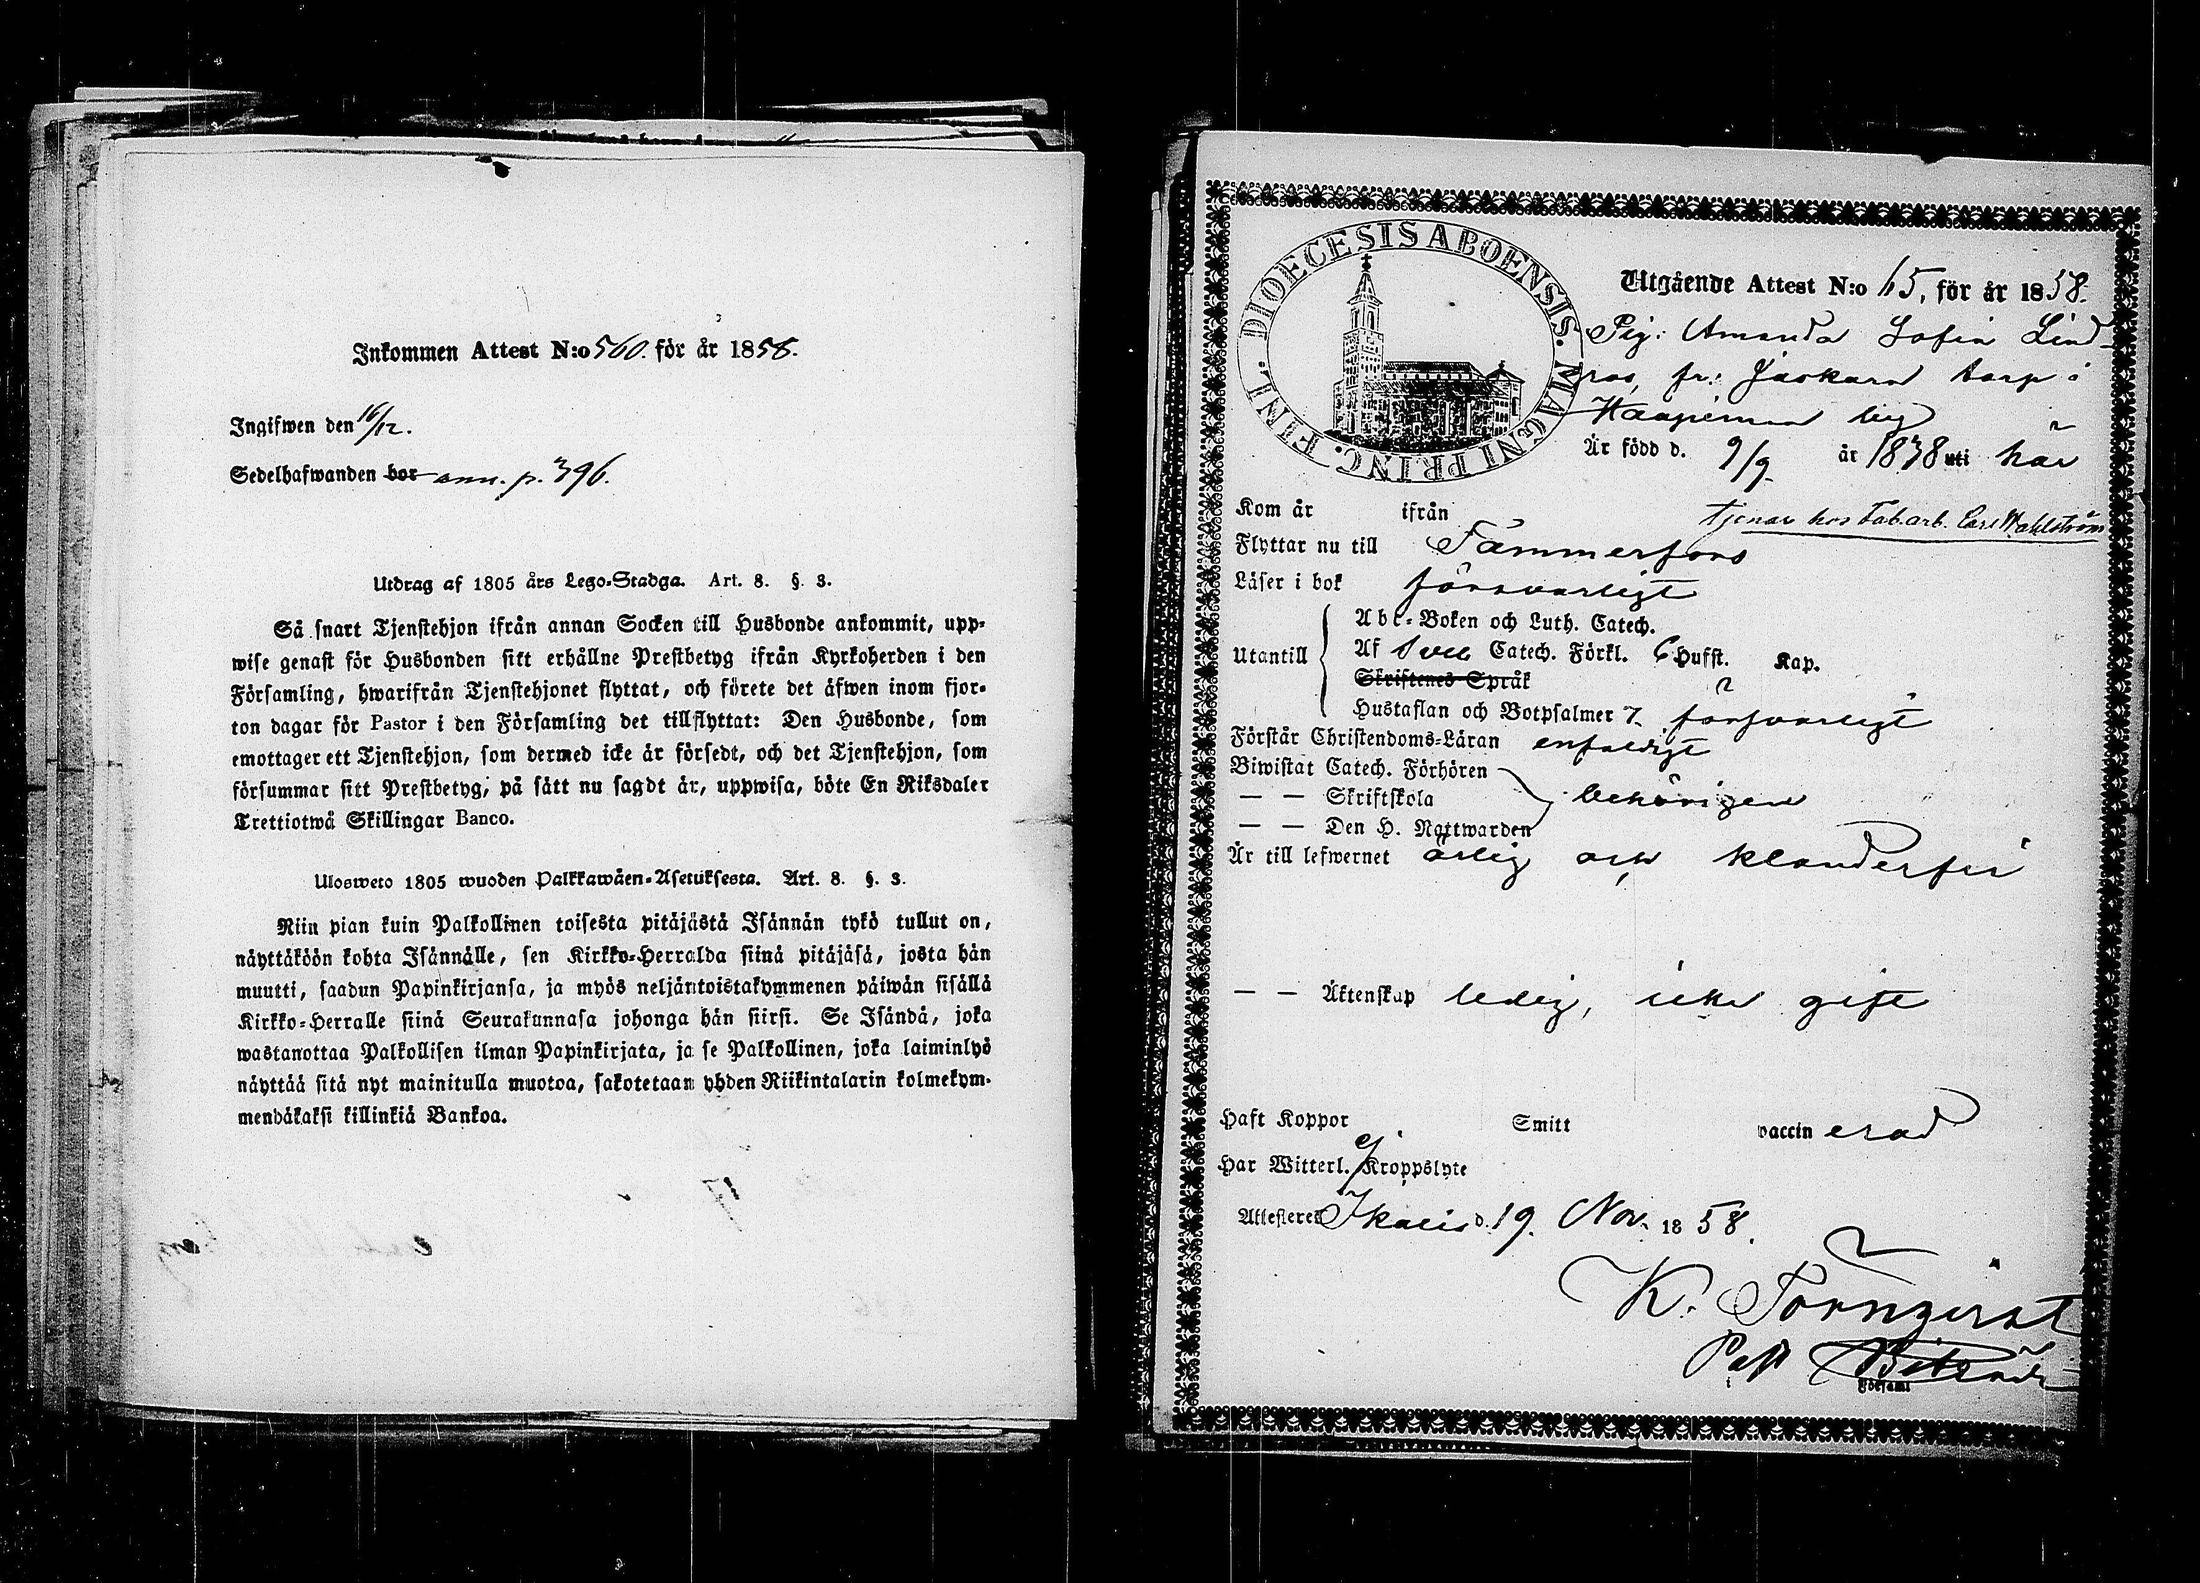 Inkommen Attest N:o 560. för år 1858.
Ingifwen den 16/12.
Sedelhafwanden bor ann. p. 396.
Utdrag af 1805 års Lego-Stadga. Art. 8. §. 3.
Så snart Tjenstehjon ifrån annan Socken till Husbonde ankommit, upp-
wise genast för Husbonden sitt erhållne Prestbetyg ifrån Kyrkoherden i den
Församling, hwarifrån Tjenstehjonet flyttat, och förete det äfwen inom fjor-
ton dagar för Pastor i den Församling det tillflyttat: Den Husbonde, som
emottager ett Tjenstehjon, som dermed icke är försedt, och det Tjenstehjon, som
försummar sitt Prestbetyg, på sätt nu sagdt är, uppwisa, böte En Riksdaler
Trettiotwå Skillingar Banco.
Ulosweto 1805 wuoden Palkkawäen-Asetuksesta. Art. 8. §. 3.
Niin pian kuin Palkollinen toisesta pitäjästä Isännän tykö tullut on,
näyttäköön kohta Isännälle, sen Kirkko-Herralda siinä pitäjäsä, josta hän
muutti, saadun Papinkirjansa, ja myös neljäntoistakymmenen päiwän sisällä
Kirkko-Herralle siinä Seurakunnasa johonga hän siirsi. Se Isändä, joka
wastanottaa Palkollisen ilman Papinkirjata, ja se Palkollinen, joka laiminlyö
näyttää sitä nyt mainitulla muotoa, sakotetaan yhden Riikintalarin kolmekym-
mendäkaksi killinkiä Bankoa.
DIOECESIS ABOENSIS. MAGNI PRINC. FINL.
Utgående Attest N:o 65, för år 1858.
Pig: Amanda Sofia Lind-
ros, fr: Jäskara torp i
by
Är född d. 9/9 år 1838 uti här
Kom år ifrån
tjenar hos Fab.arb. Carl Wahlström
Flyttar nu till Tammerfors
Läser i bok försvarligt
Utantill
Abc-Boken och Luth. Catech.
Af Sveb Catech. Förkl. 6 Hufst. Kap.
Skriftenes Språk
Hustaflan och Botpsalmer 7. försvarligt
Förstår Christendoms-Läran enfaldigt
Biwistat Catech. Förhören
— — Skriftskola behörigen
— — Den H. Nattwarden
Är till lefwernet ärlig och klanderfri
— — Äktenskap ledig, icke gift
Haft Koppor Smitt vaccinerad
Har Witterl. ej Kroppslyte
Attesterer Ikalis d. 19. Nov. 1858.
K. Törnqvist
Past
i Församl